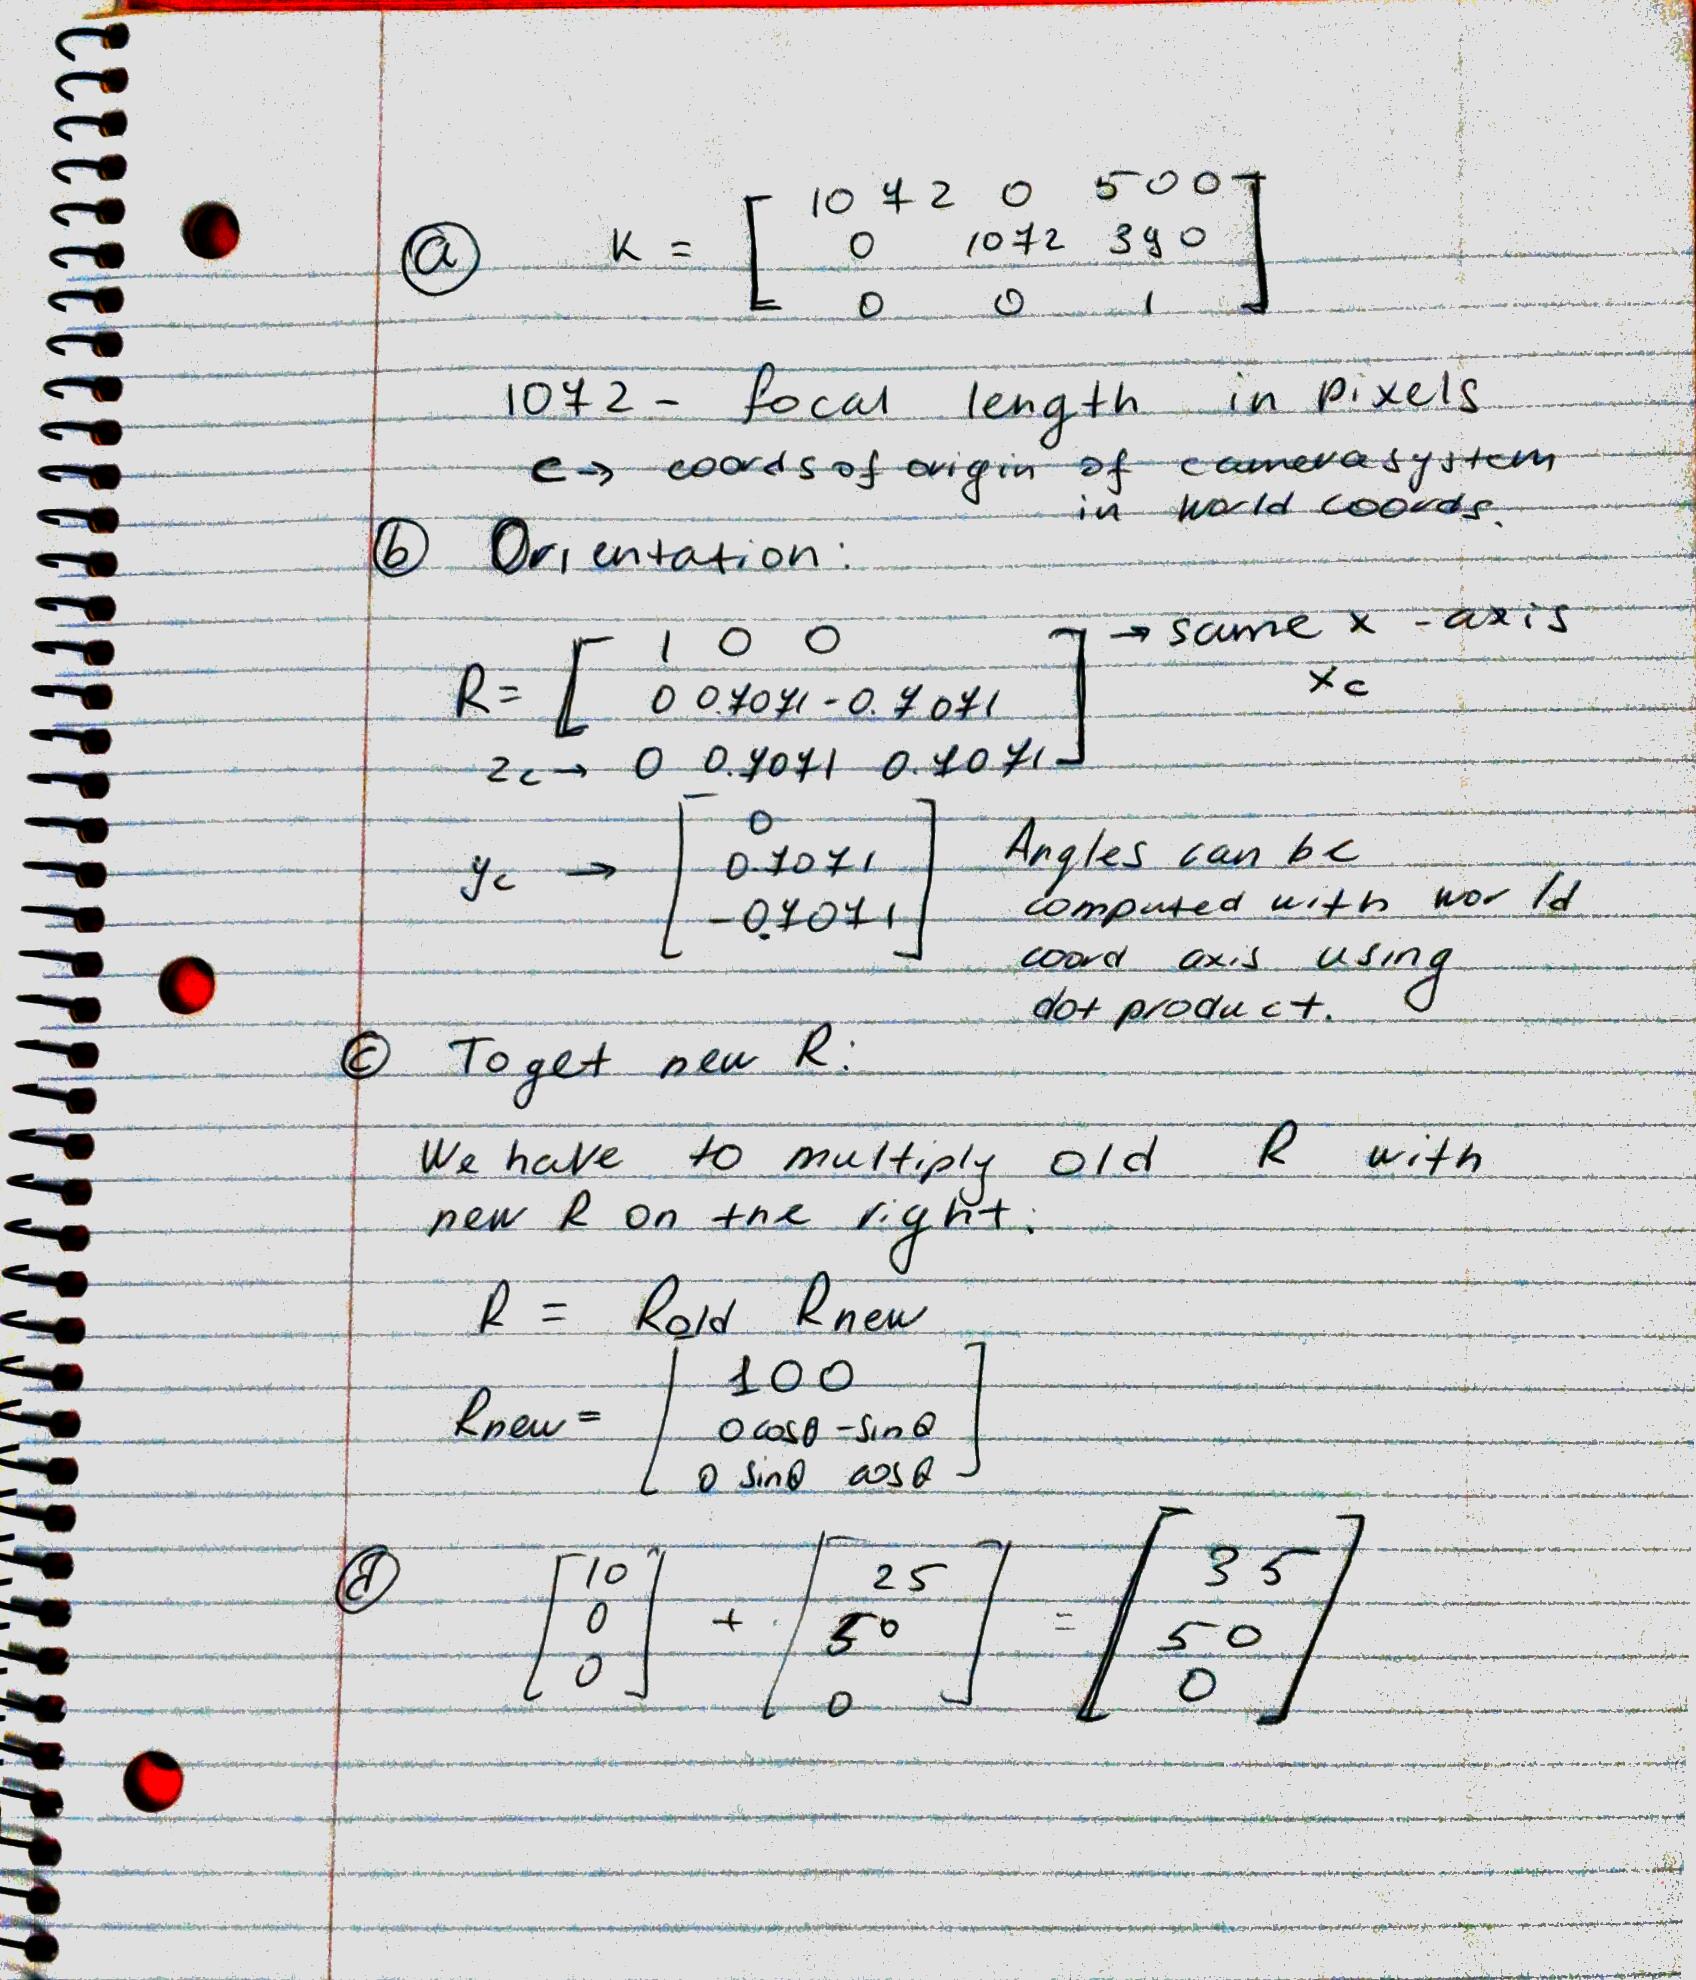 a K = [ 1072 0 500
0 1072 390
0 0 1 ]
1072 - focal length in pixels
c → coords of origin of camera system
in world coords.
b Orientation:
R = [ 1 0 0 ] → same x - axis
xc
0 0.7071 -0.7071
zc → 0 0.7071 0.7071
yc → [ 0
0.7071
-0.7071 ]
Angles can be
computed with world
coord axis using
dot product.
c To get new R:
We have to multiply old R with
new R on the right.
R = Rold Rnew
Rnew = [ 1 0 0
0 cosθ -sinθ
0 sinθ cosθ ]
d [ 10 0 0 ] + [ 25 50 0 ] = [ 35 50 0 ]